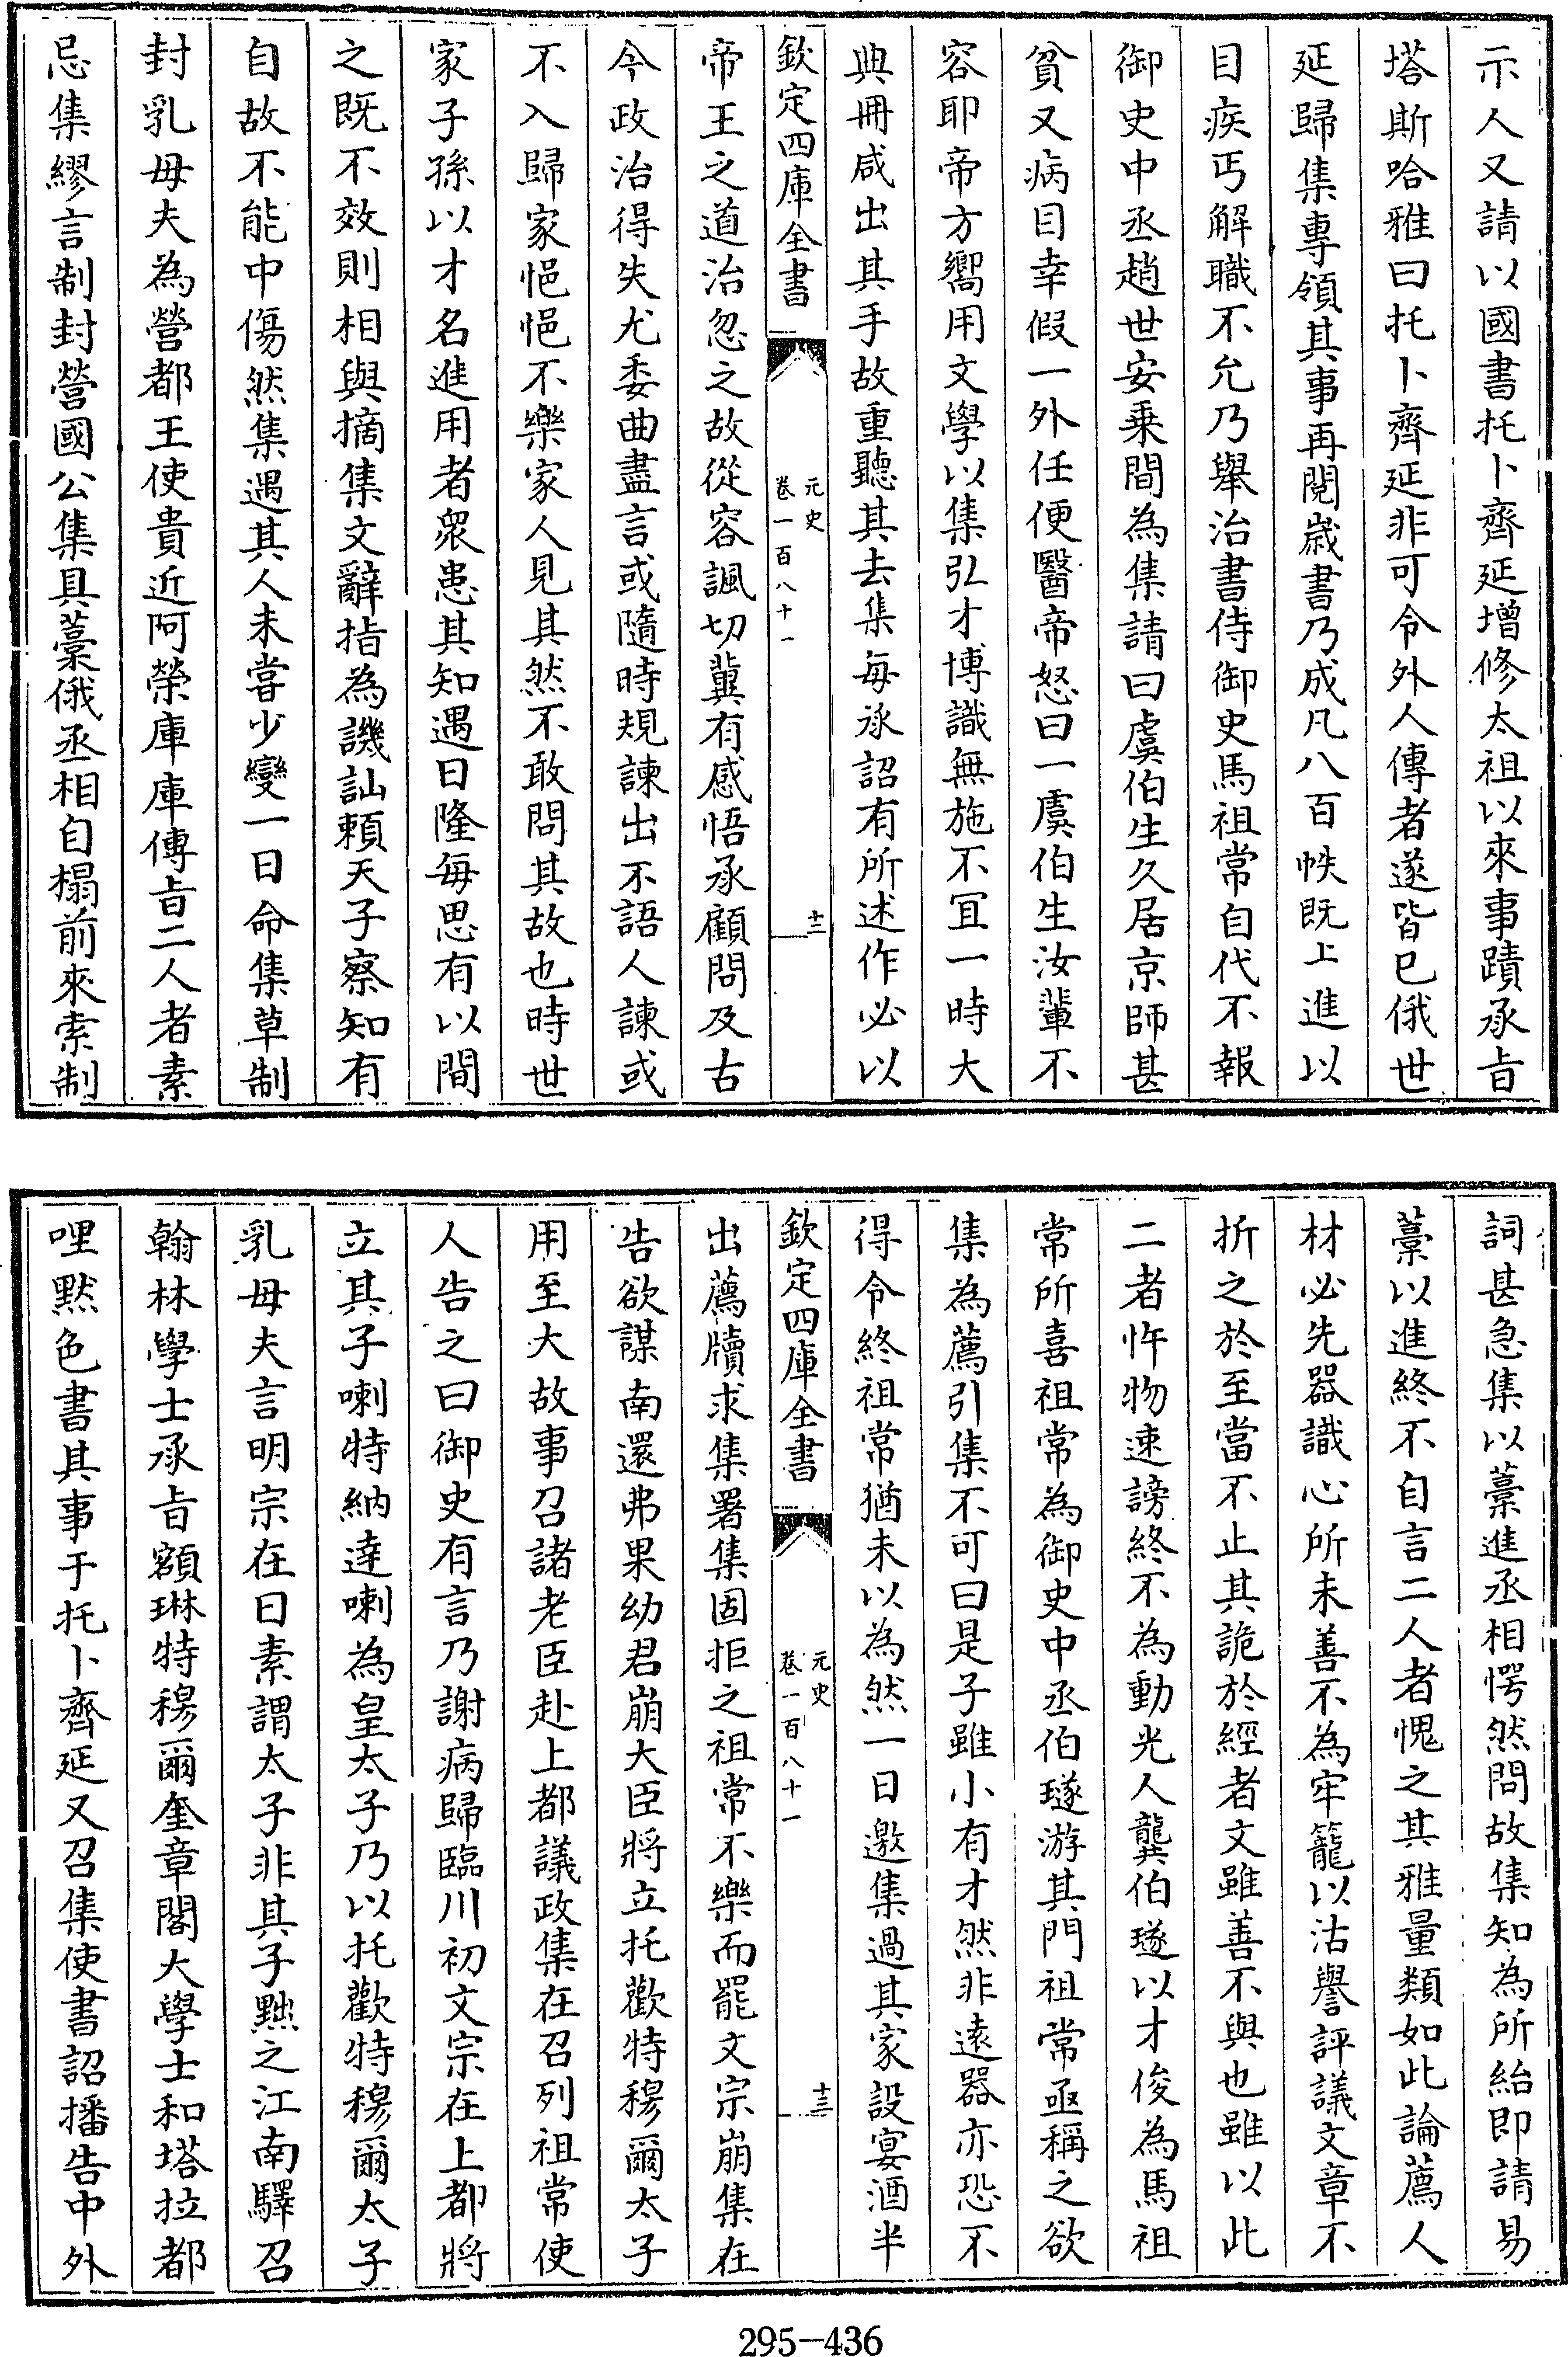 示人又請以國書托卜齊延增修太祖以來事蹟承㫖
塔斯哈雅曰托卜齊延非可令外人傳者遂皆已俄世
延歸集專領其事再閱歲書乃成凡八百帙既上進以
目疾丐解職不允乃舉治書侍御史馬祖常自代不報
御史中丞趙世安乗間為集請曰虞伯生久居京師甚
貧又病目幸假一外任便醫帝怒曰一虞伯生汝輩不
容耶帝方嚮用文學以集弘才博識無施不宜一時大
典冊咸出其手故重聽其去集每承詔有所述作必以
欽定四庫全書
元史
卷一百八十一
十二
帝王之道治忽之故從容諷切冀有感悟承顧問及古
今政治得失尤委曲盡言或隨時規諫出不語人諫或
不入歸家悒悒不樂家人見其然不敢問其故也時世
家子孫以才名進用者衆患其知遇日隆每思有以間
之既不效則相與摘集文辭指為譏訕賴天子察知有
自故不能中傷然集遇其人未嘗少變一日命集草制
封乳母夫為營都王使貴近阿榮庫庫傳㫖二人者素
忌集繆言制封營國公集具藁俄丞相自榻前來索制
詞甚急集以藁進丞相愕然問故集知為所紿即請易
藁以進終不自言二人者愧之其雅量類如此論薦人
材必先器識心所未善不為牢籠以沽譽評議文章不
折之於至當不止其詭於經者文雖善不與也雖以此
二者忤物速謗終不為動光人龔伯璲以才俊為馬祖
常所喜祖常為御史中丞伯璲游其門祖常亟稱之欲
集為薦引集不可曰是子雖小有才然非遠器亦恐不
得令終祖常猶未以為然一日邀集過其家設宴酒半
欽定四庫全書
元史
卷一百八十一
十三
出薦牘求集署集固拒之祖常不樂而罷文宗崩集在
告欲謀南還弗果幼君崩大臣將立托歡特穆爾太子
用至大故事召諸老臣赴上都議政集在召列祖常使
人告之曰御史有言乃謝病歸臨川初文宗在上都將
立其子喇特納達喇為皇太子乃以托歡特穆爾太子
乳母夫言明宗在日素謂太子非其子黜之江南驛召
翰林學士承㫖額琳特穆爾奎章閣大學士和塔拉都
哩黙色書其事于托卜齊延又召集使書詔播告中外
295-436